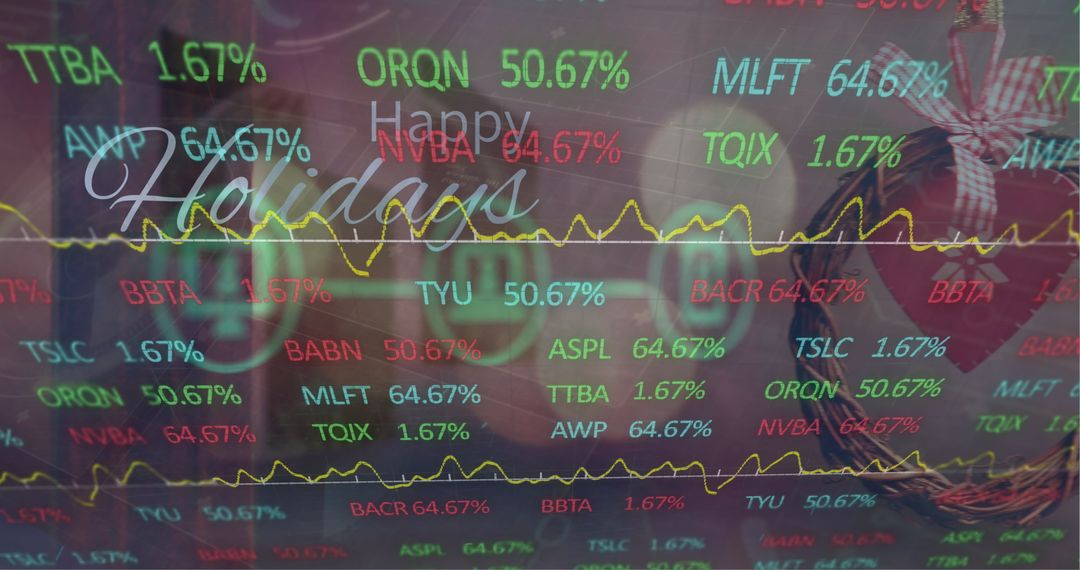 BABN 50.67%
TTBA 1.67% ORQN 50.67% MLFT 64.67%
Happy
AWP 64.67% NVBA 64.67% TQIX 1.67% AWP
Holidays
BBTA 1.67% TYU 50.67% BACR 64.67% BBTA
TSLC 1.67% BABN 50.67% ASPL 64.67% TSLC 1.67% BABN
ORQN 50.67% MLFT 64.67% TTBA 1.67% ORQN 50.67% MLFT
NVBA 64.67% TQIX 1.67% AWP 64.67% NVBA 64.67% TQIX
1.67% TYU 50.67% BACR 64.67% BBTA 1.67% TYU 50.67%
TSLC 1.67% BABN 50.67% ASPL 64.67% TSLC 1.67% BABN 50.67% ASPL 64.67%
ORQN 50.67% MLFT 64.67% TTBA 1.67%